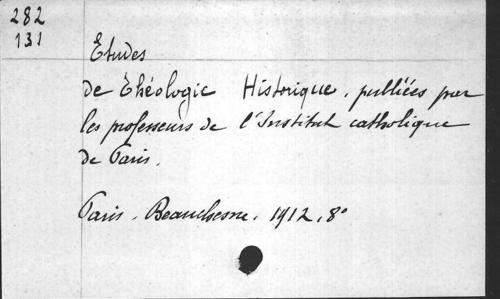 282
131
Etudes
de Théologie Historique, publiées par
les professeurs de l'Institut catholique
de Paris.
Paris. Beauchesne. 1912, 8°